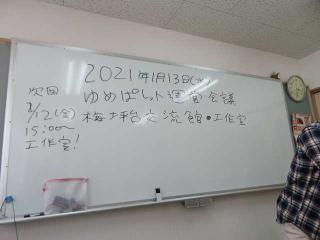 2021年1月13日(水)
ゆめぱれっと運営会議
梅坪台交流館・工作室
次回
2/12(金)
15:00〜
工作室!